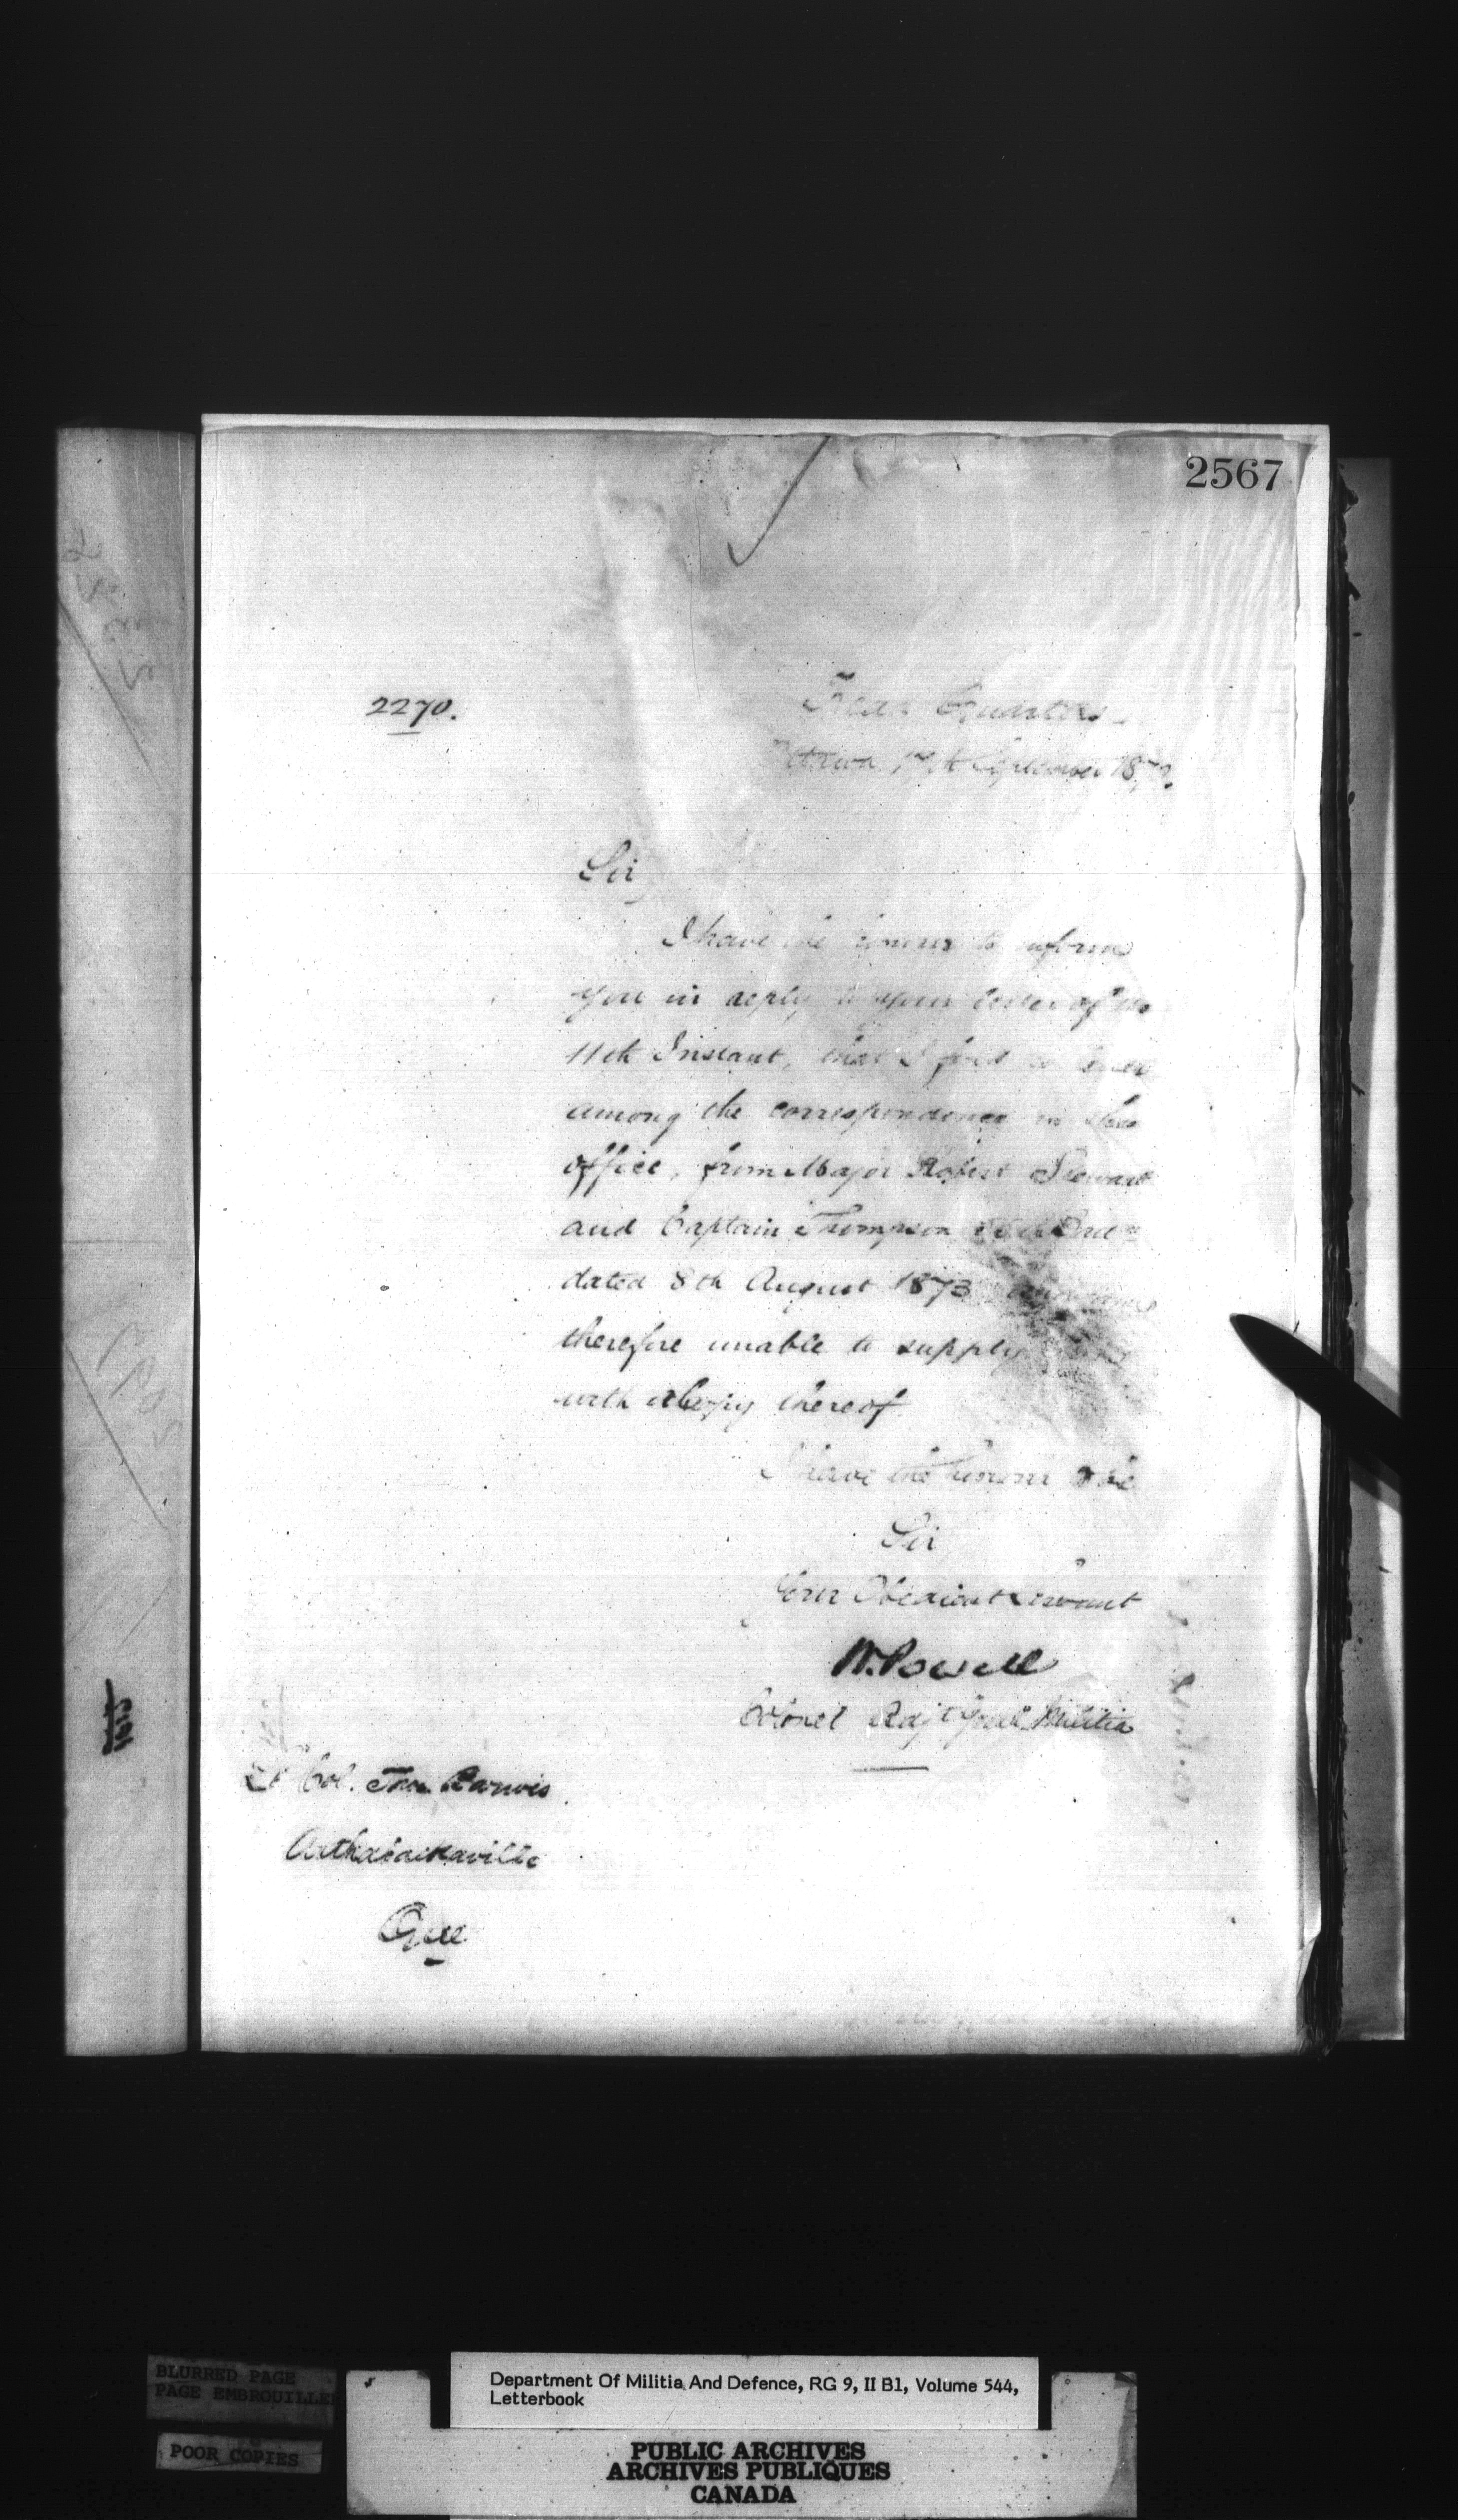 2567
2270.
Head Quarters
Ottawa September 187
Sir,
I have the honour to inform
you in reply to your letter of the
11th Instant, that I find no letter
among the correspondence in this
office, from Major Robert Stewart
and Captain Thompson
dated 8th August 1873
therefore unable to supply
with a Copy thereof
I have the honour to be
Sir
Your Obedient Servant
W. Powell
Colonel Adjt Genl Militia
Lt Col.
Arthabaskaville
Que
BLURRED PAGE
PAGE EMBROUILLEE
POOR COPIES
Department Of Militia And Defence, RG 9, II B1, Volume 544,
Letterbook
PUBLIC ARCHIVES
ARCHIVES PUBLIQUES
CANADA